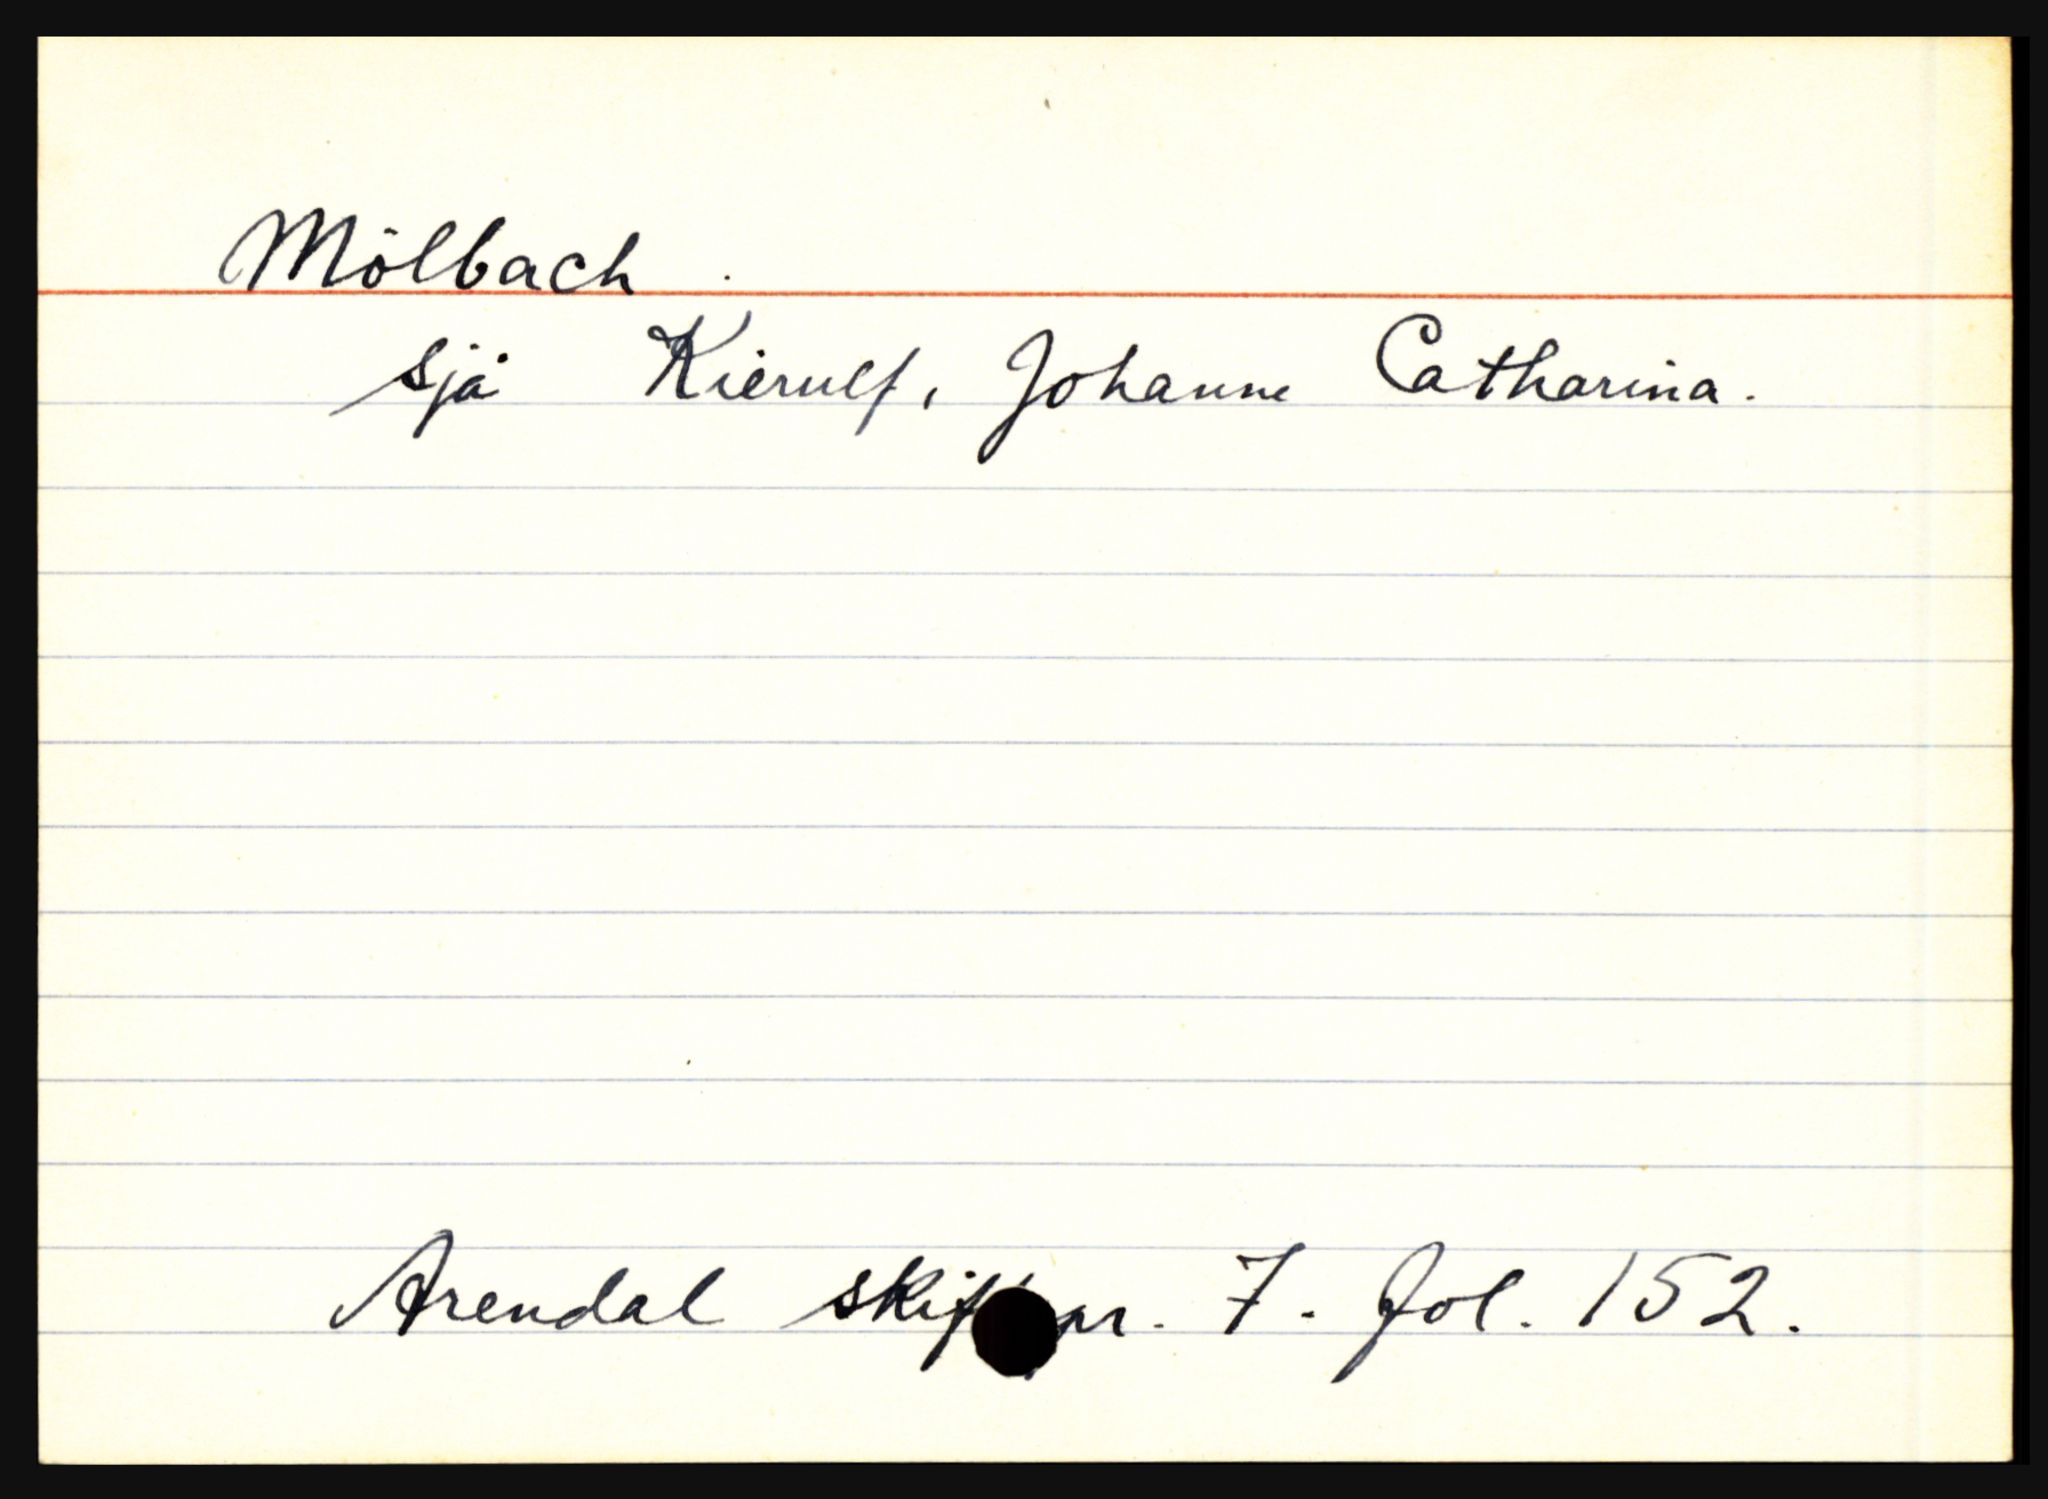 Mölbach
sjå Kierulf, Johanne Catharina.
Arendal skiftpr. 7. Fol. 152.